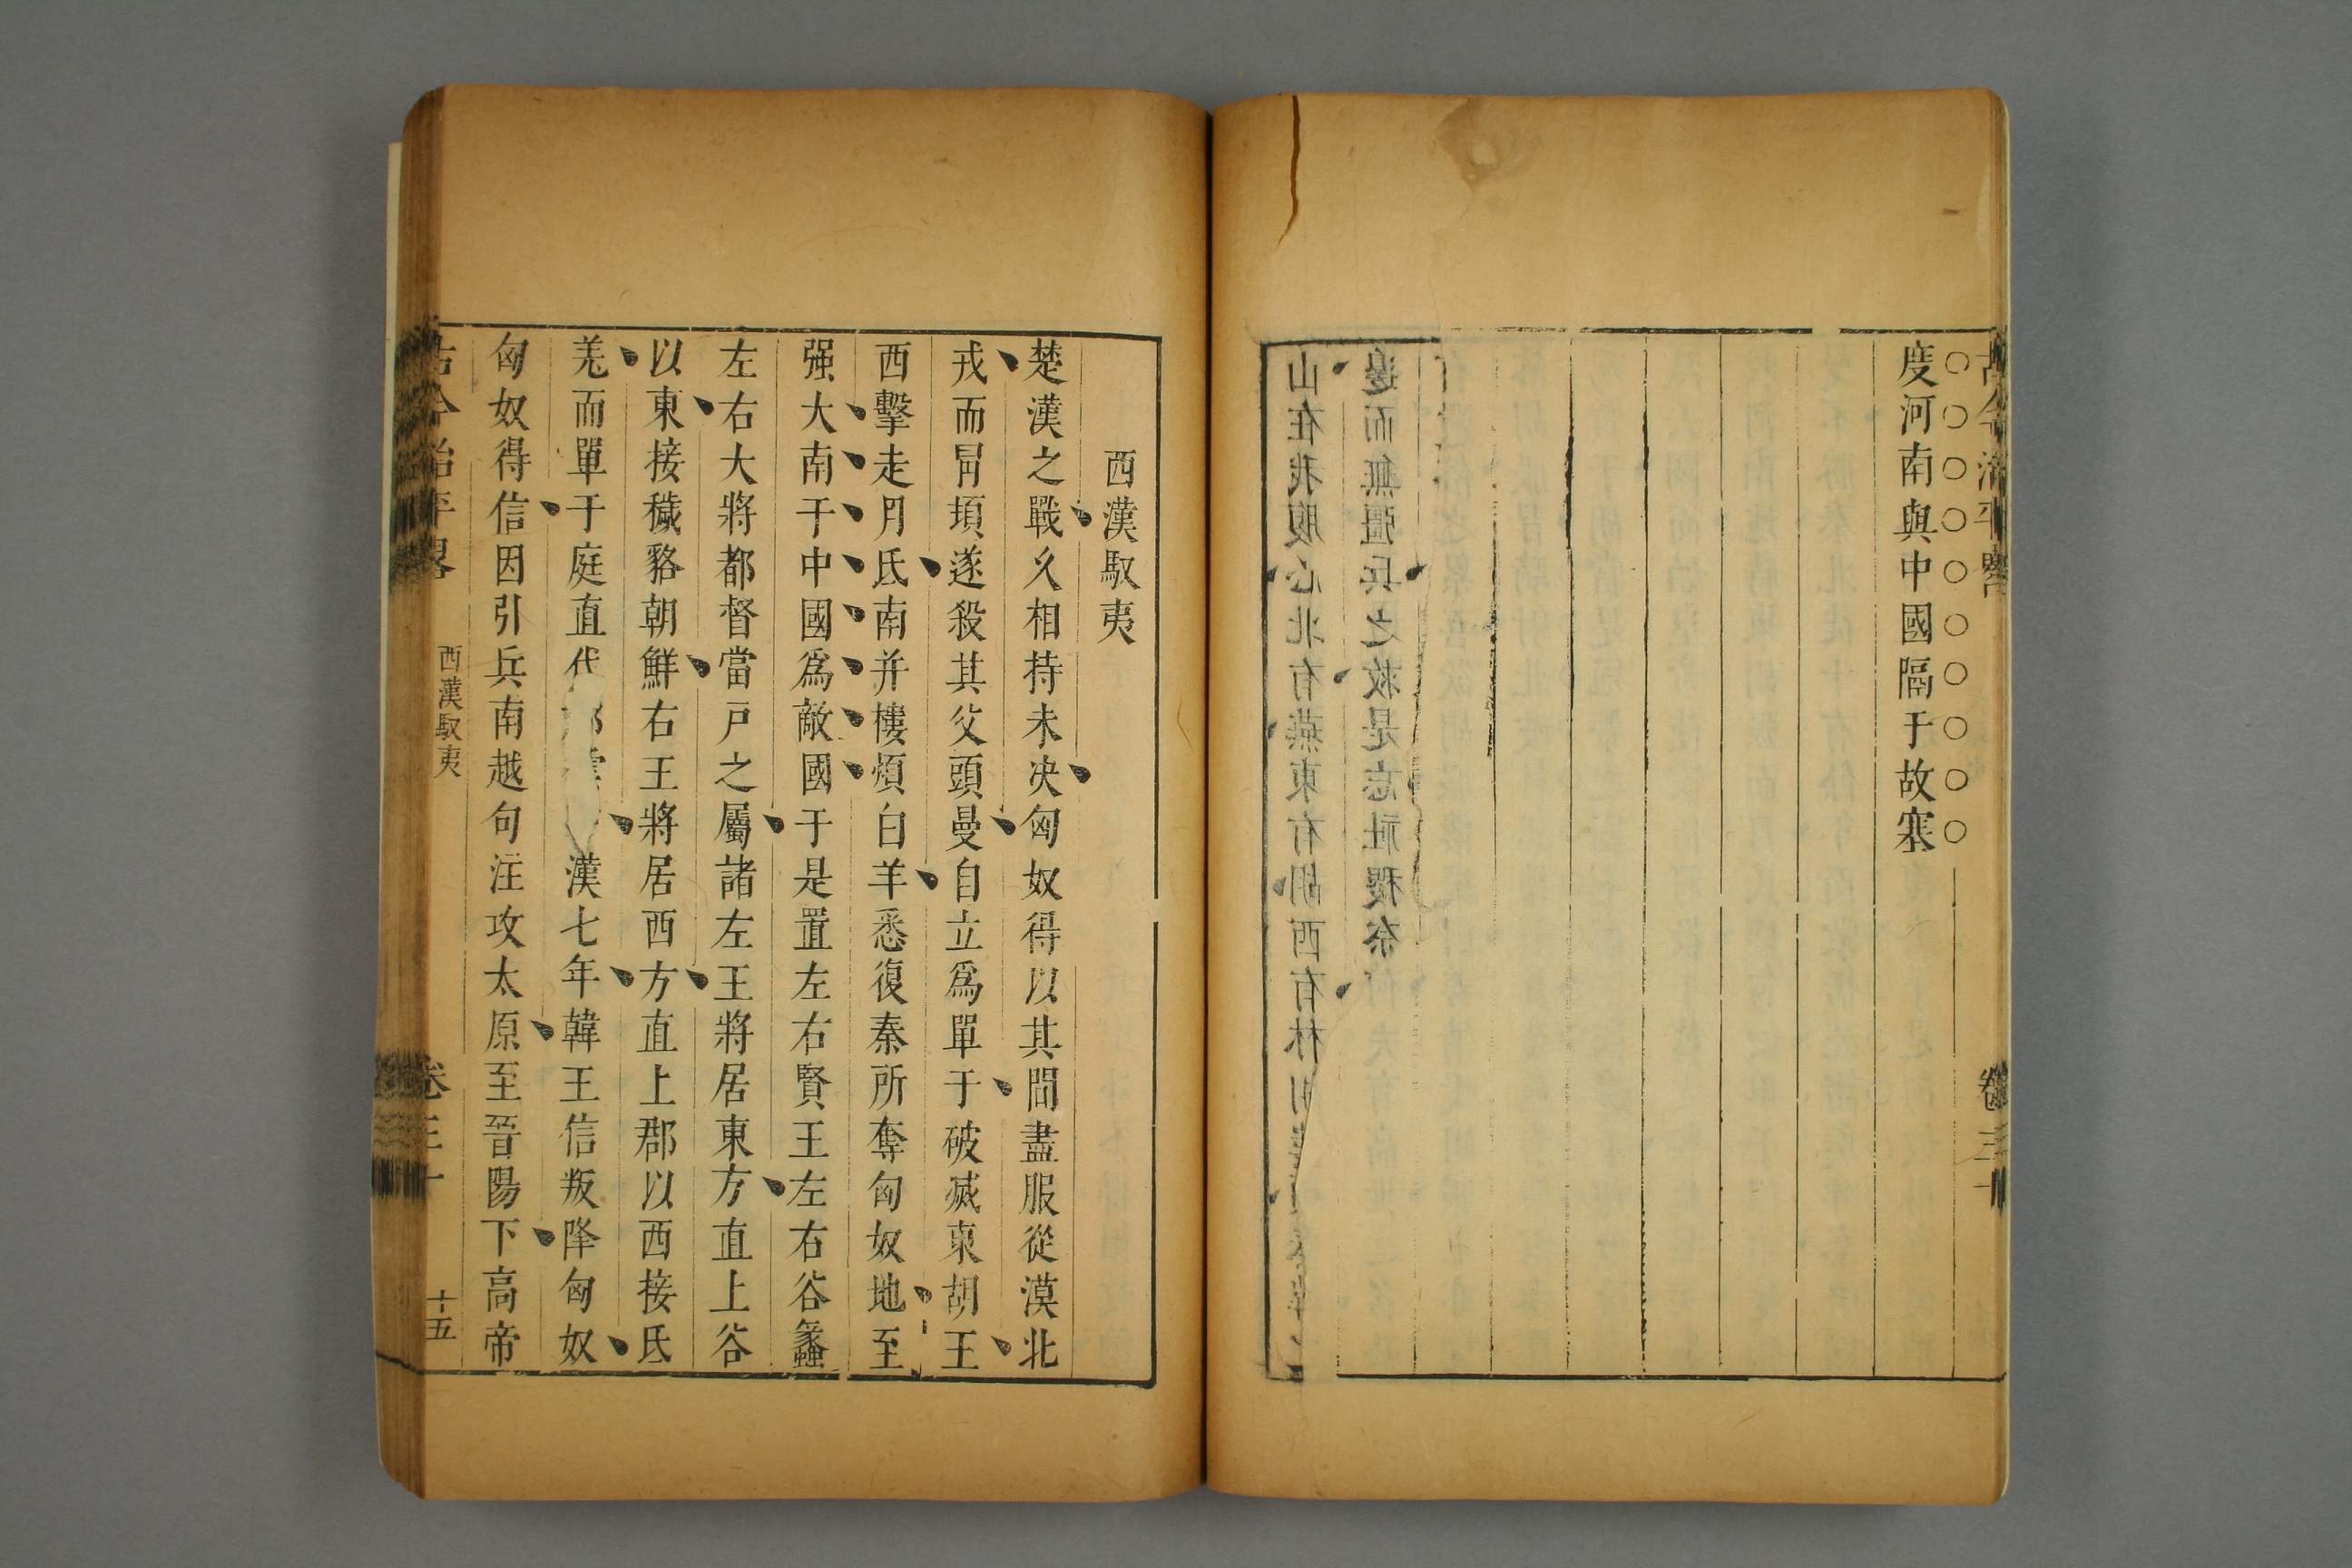 古今治平畧
卷三十
度河南與中國隔于故塞
西漢馭夷
楚漢之戰久相持未决匈奴得以其間盡服從漠北
戎而冐頊遂殺其父頭曼自立爲單于破滅東胡王
西擊走月氏南并樓煩白羊悉復秦所奪匈奴地至
强大南于中國爲敵國于是置左右賢王左右谷蠡
左右大將都督當戸之屬諸左王將居東方直上谷
以東接穢貉朝鮮右王將居西方直上郡以西接氐
羌而單于庭直代漢七年韓王信叛降匈奴
匈奴得信因引兵南越句注攻太原至晉陽下高帝
古今治平畧
西漢馭夷
卷三十
十五